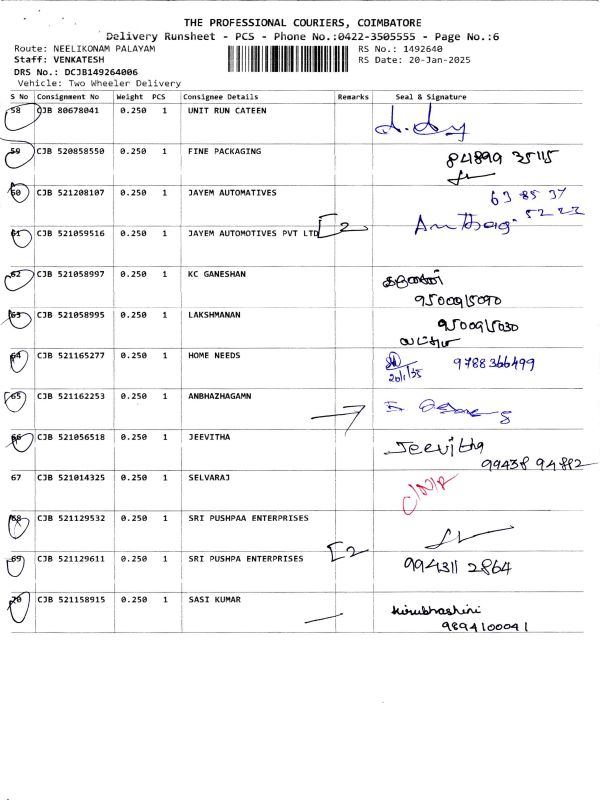 THE PROFESSIONAL COURIERS, COIMBATORE
Delivery Runsheet - PCS - Phone No.:0422-3505555 - Page No.:6
Route: NEELIKONAM PALAYAM RS No.: 1492640
Staff: VENKATESH RS Date: 20-Jan-2025
DRS No.: DCJB149264006
Vehicle: Two Wheeler Delivery
S No Consignment No Weight PCS Consignee Details Remarks Seal & Signature
58 CJB 80678041 0.250 1 UNIT RUN CATEEN
59 CJB 520858550 0.250 1 FINE PACKAGING 84899 35115
60 CJB 521208107 0.250 1 JAYEM AUTOMATIVES 63 85 37
52 22
61 CJB 521059516 0.250 1 JAYEM AUTOMOTIVES PVT LTD
62 CJB 521058997 0.250 1 KC GANESHAN
9500915090
63 CJB 521058995 0.250 1 LAKSHMANAN 9500915030
64 CJB 521165277 0.250 1 HOME NEEDS 9788366499
65 CJB 521162253 0.250 1 ANBHAZHAGAMN
66 CJB 521056518 0.250 1 JEEVITHA Jeevitha
99438 94882
67 CJB 521014325 0.250 1 SELVARAJ
68 CJB 521129532 0.250 1 SRI PUSHPAA ENTERPRISES
69 CJB 521129611 0.250 1 SRI PUSHPA ENTERPRISES 994311 2864
70 CJB 521158915 0.250 1 SASI KUMAR kirubhashini
9894100041